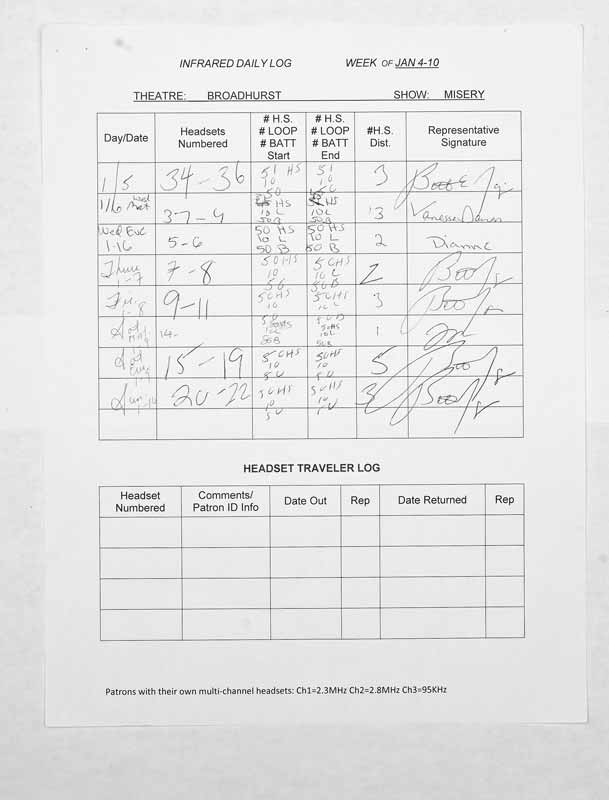 INFRARED DAILY LOG WEEK OF JAN 4-10
THEATRE: BROADHURST SHOW: MISERY
Day/Date Headsets Numbered # H.S. # LOOP # BATT Start # H.S. # LOOP # BATT End #H.S. Dist. Representative Signature
1/5 34-36 51 HS 10 50 51 10 3
1/6 Wed Mat 37-4 HS 10 L 50B HS 10 L 50B 3 Vanessa
Wed Eve 1-16 5-6 50 HS 10 L 50 B 50 HS 10 L 50 B 2 Dianne
Thur 7-8 50HS 10 50 50HS 10 L 50B 2
Fri 1-8 9-11 50HS 10 50 50HS 10 L 50B 3
Sat 14- 50HS 10L 50B 50HS 10L 50B 1
Sat Eve 15-19 50HS 10 50 50HS 10 50 5
Sun 20-22 50HS 10 50 50HS 10 50 3
HEADSET TRAVELER LOG
Headset Numbered Comments/ Patron ID Info Date Out Rep Date Returned Rep
Patrons with their own multi-channel headsets: Ch1=2.3MHz Ch2=2.8MHz Ch3=95KHz